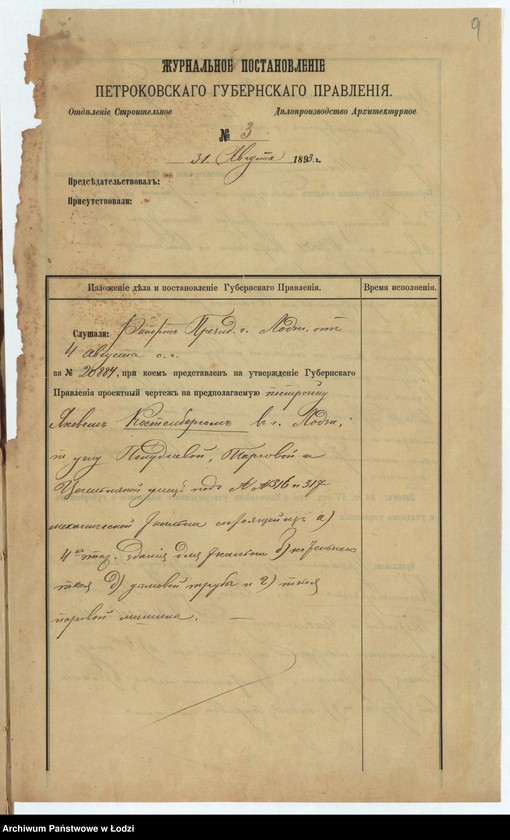 9
ЖУРНАЛЬНОЕ ПОСТАНОВЛЕНІЕ
ПЕТРОКОВСКАГО ГУБЕРНСКАГО ПРАВЛЕНІЯ.
Отдѣленіе Строительное Дѣлопроизводство Архитектурное
№ 3
31 Августа 1893 г.
Предсѣдательствовалъ:
Присутствовали:
Изложеніе дѣла и постановленіе Губернскаго Правленія. Время исполненія.
Слушали: Рапортъ Презид. г. Лодзи отъ
4 августа с. г.
за № 20884, при коемъ представленъ на утвержденіе Губернскаго
Правленія проектный чертежъ на предполагаемую постройку
Яковомъ въ г. Лодзи,
углу Полудневой, Торговой и
подъ №№ 316 и 317
механической ткальни состоящей изъ а)
4 этаж. зданія для ткальни б)
в) дымовой трубы и г)
паровой машины.
Archiwum Państwowe w Łodzi